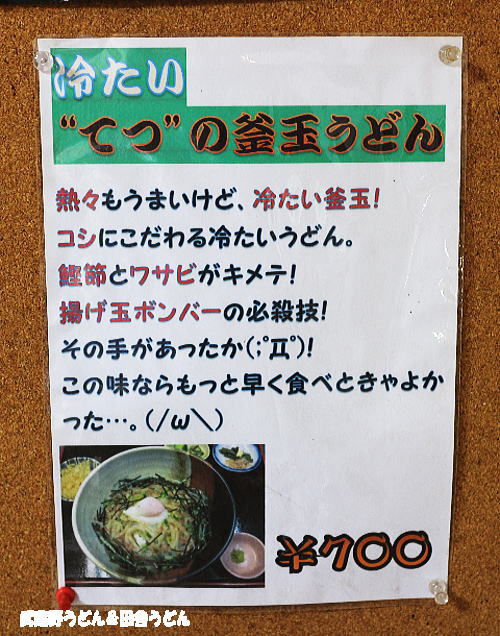 冷たい
“てつ”の釜玉うどん
熱々もうまいけど、冷たい釜玉!
コシにこだわる冷たいうどん。
鰹節とワサビがキメテ!
揚げ玉ボンバーの必殺技!
その手があったか(;ﾟДﾟ)!
この味ならもっと早く食べときゃよか
った…。(/ω＼)
¥700
武蔵野うどん&田舎うどん